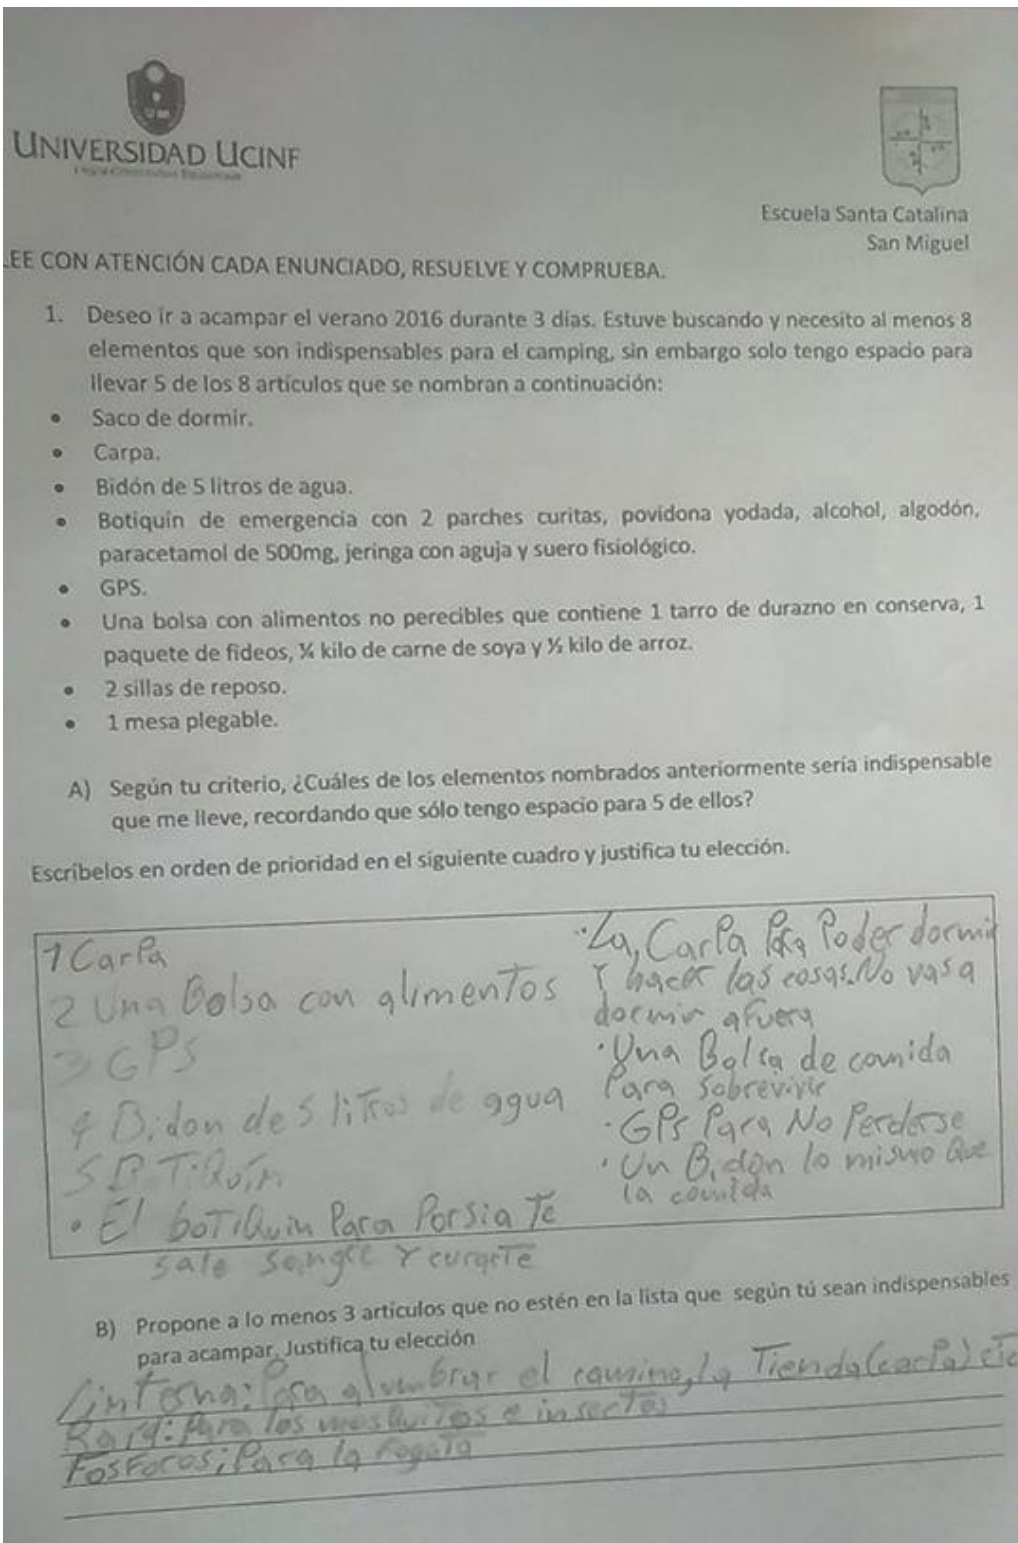 UNIVERSIDAD UCINF
Escuela Santa Catalina
San Miguel
LEE CON ATENCIÓN CADA ENUNCIADO, RESUELVE Y COMPRUEBA.
1. Deseo ir a acampar el verano 2016 durante 3 días. Estuve buscando y necesito al menos 8
elementos que son indispensables para el camping, sin embargo solo tengo espacio para
llevar 5 de los 8 artículos que se nombran a continuación:
• Saco de dormir.
• Carpa.
• Bidón de 5 litros de agua.
• Botiquín de emergencia con 2 parches curitas, povidona yodada, alcohol, algodón,
paracetamol de 500mg, jeringa con aguja y suero fisiológico.
• GPS.
• Una bolsa con alimentos no perecibles que contiene 1 tarro de durazno en conserva, 1
paquete de fideos, ¼ kilo de carne de soya y ½ kilo de arroz.
• 2 sillas de reposo.
• 1 mesa plegable.
A) Según tu criterio, ¿Cuáles de los elementos nombrados anteriormente sería indispensable
que me lleve, recordando que sólo tengo espacio para 5 de ellos?
Escríbelos en orden de prioridad en el siguiente cuadro y justifica tu elección.
1 Carpa
2 Una Bolsa con alimentos
3 GPS
4 Bidon de 5 litros de agua
5 BoTiQuin
• El boTiQuin Para Porsia Te
sale sangre Y curarte
• La Carpa Para Poder dormir
Y hacer las cosas. No vas a
dormir afuera
• Una Bolsa de comida
Para sobrevivir
• GPS Para No Perderse
• Un Bidon lo mismo Que
la comida
B) Propone a lo menos 3 artículos que no estén en la lista que según tú sean indispensables
para acampar. Justifica tu elección
Linterna: Para alumbrar el camino, la Tienda (carpa) etc
Raid: Para los mosquitos e insectos
Fosforos: Para la fogata